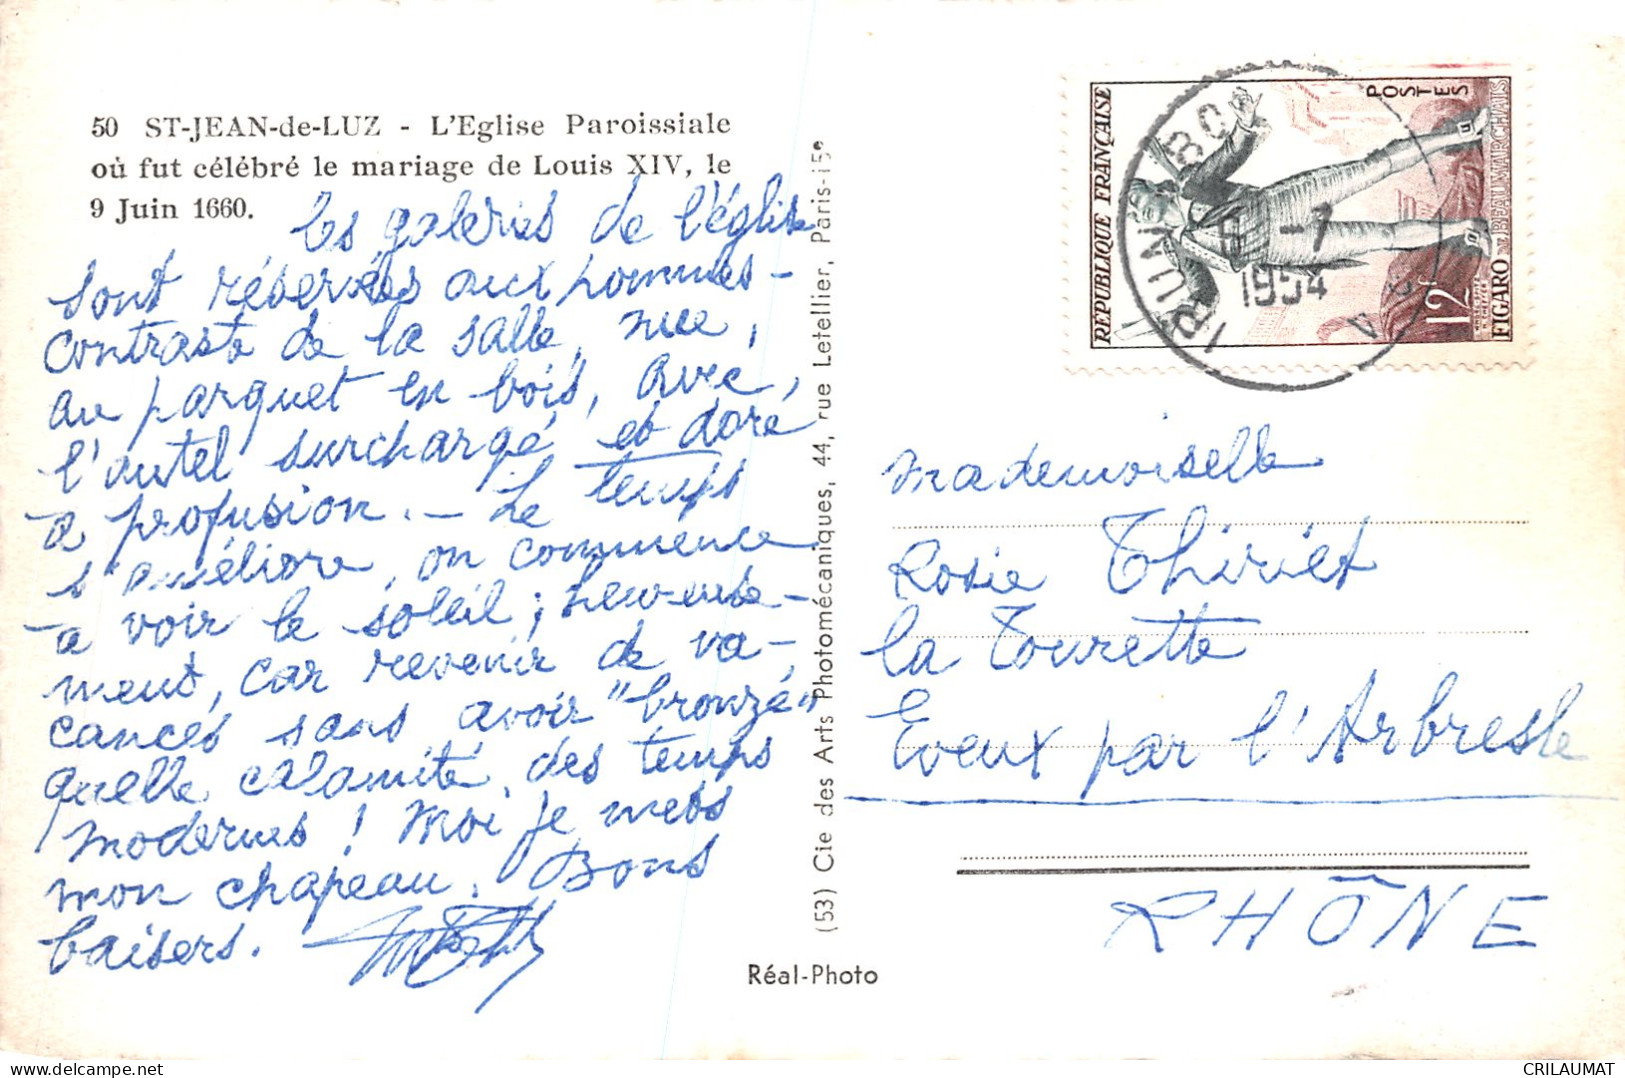 50 ST-JEAN-de-LUZ - L'Eglise Paroissiale
où fut célébré le mariage de Louis XIV, le
9 Juin 1660.
Les galeries de l'église
sont réservées aux hommes -
contraste de la salle, nue,
au parquet en bois, avec,
l'autel surchargé et doré
à profusion. - Le temps
s'améliore, on commence
à voir le soleil ; heureuse-
ment, car revenir de va-
cances sans avoir "bronzé"
quelle calamité des temps
modernes ! Moi je mets
mon chapeau. Bons
baisers.
(53) Cie des Arts Photomécaniques, 44, rue Letellier, Paris-15e
Réal-Photo
RÉPUBLIQUE FRANÇAISE
POSTES
12F
FIGARO
BEAUMARCHAIS
IRUN
-7
1954
Mademoiselle
Rosie Thiriet
La Tourette
Eveux par l'Arbresle
RHÔNE
CRILAUMAT